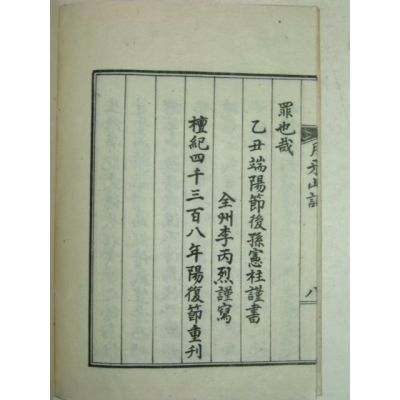 罪也哉
乙丑端陽節後孫憲柱謹書
全州李丙烈謹寫
檀紀四千三百八年陽復節重刊
八